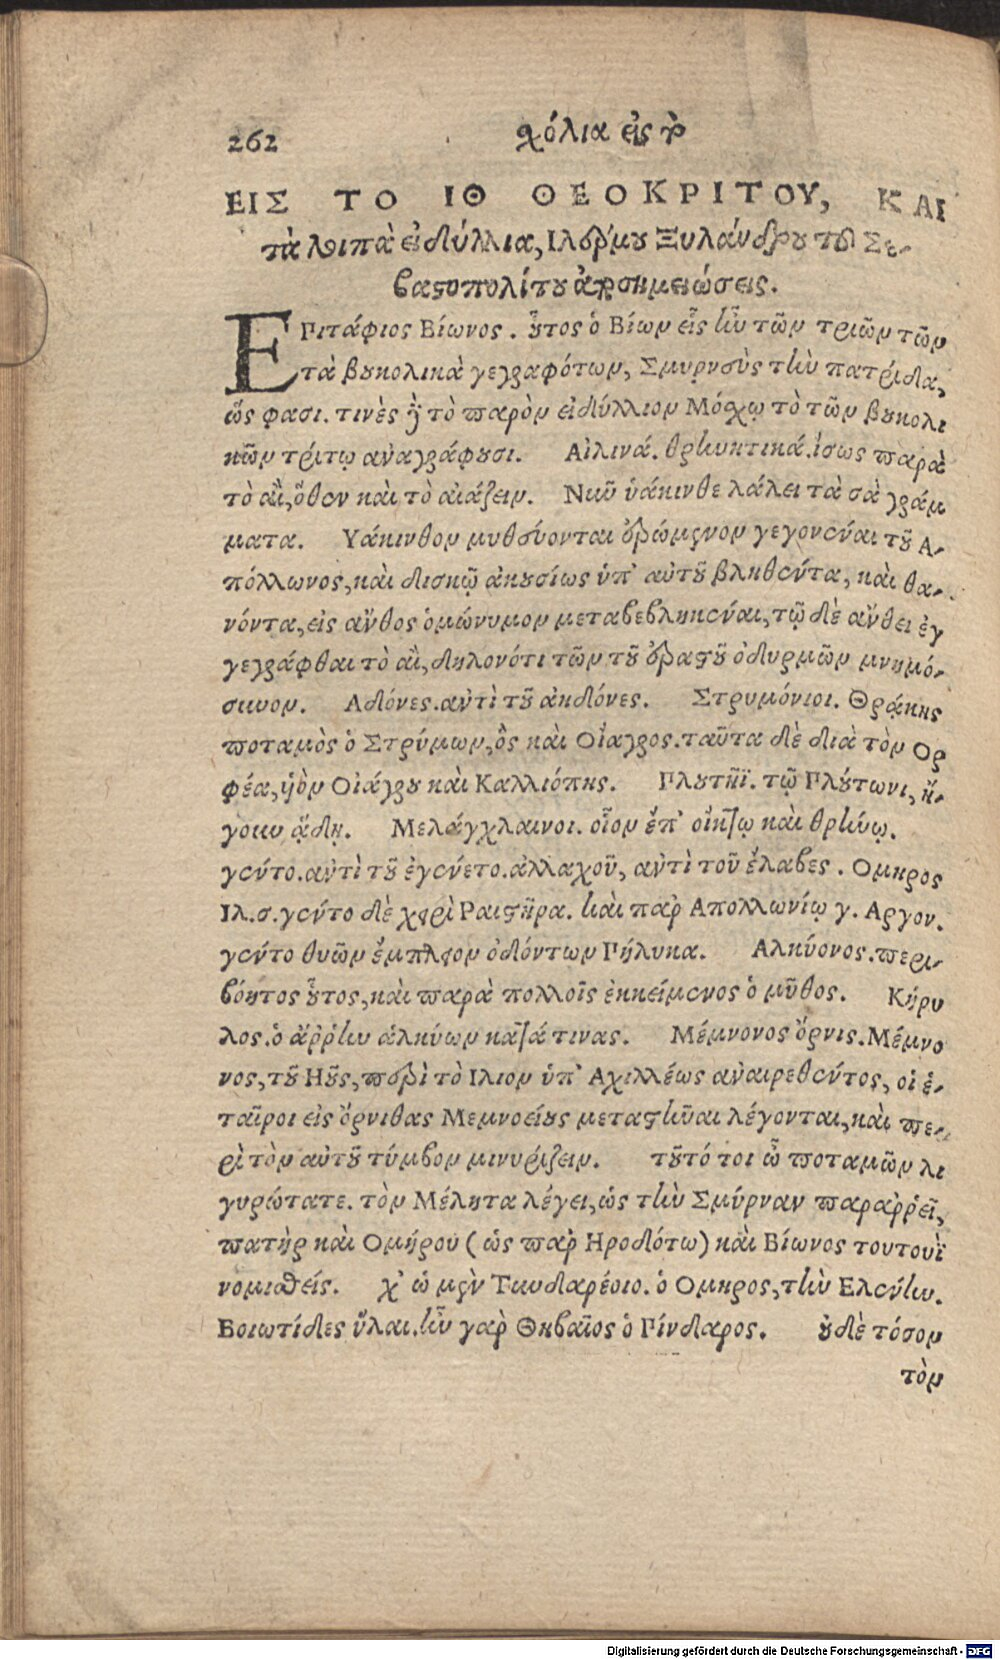 262 σχόλια εἰς τὸ
ΕΙΣ ΤΟ ΙΘ ΘΕΟΚΡΙΤΟΥ, ΚΑΙ
τὰ λοιπὰ εἰδύλλια, Γυλιέλμου Ξυλάνδρου τοῦ Σε-
βαστοπολίτου ἀποσημειώσεις.
ΕΠιτάφιος Βίωνος. οὗτος ὁ Βίων εἷς ἦν τῶν τριῶν τῶν
τὰ βουκολικὰ γεγραφότων, Σμυρνεὺς τὴν πατρίδα,
ὥς φασι. τινὲς δὲ τὸ παρὸν εἰδύλλιον Μόσχῳ τὸ τῶν βουκολι
κῶν τρίτῳ αναγράφουσι. Αἴλινά. θρηνητικά. ἴσως παρὰ
τὸ αἲ, ὅθεν καὶ τὸ αἰάζειν. Νῦν ὑάκινθε λάλει τὰ σὰ γράμ
ματα. Υάκινθον μυθεύονται ἐρώμενον γεγονέναι τοῦ Α-
πόλλωνος, καὶ δίσκῳ ἀκουσίως ὑπ' αὐτοῦ βληθέντα, καὶ θα-
νόντα, εἰς ἄνθος ὁμώνυμον μεταβεβληκέναι, τῷ δὲ ἄνθει ἐγ
γεγράφθαι τὸ αἲ, δηλονότι τῶν τοῦ ἐραστοῦ ὀδυρμῶν μνημό-
συνον. Αδόνες. αὐτὶ τοῦ ἀηδόνες. Στρυμόνιοι. Θρᾴκης
ποταμὸς ὁ Στρύμων, ὃς καὶ Οἴαγρος. ταῦτα δὲ διὰ τὸν Ορ
φέα, υἱὸν Οἰάγρου καὶ Καλλιόπης. Πλουτῆϊ. τῷ Πλούτωνι, ἤ-
γουν ᾅδῃ. Μελάγχλαινοι. οἷον ἐπ' οἴκτῳ καὶ θρήνῳ.
γέντο. αὐτὶ τοῦ ἐγένετο. ἀλλαχοῦ, αὐτὶ τοῦ ἔλαβες. Ομηρος
Ιλ. σ. γέντο δὲ χειρὶ Ραιστῆρα. καὶ παρ' Απολλωνίῳ γ. Αργον.
γέντο θυῶν ἔμπλεον ὀδόντων Πήληκα. Αλκύονος. περι-
βόητος οὗτος, καὶ παρὰ πολλοῖς ἐκκείμενος ὁ μῦθος. Κήρυ
λος. ὁ ἄῤῥην ἀλκύων κατά τινας. Μέμνονος ὄρνις. Μέμνο
νος, τοῦ Ηοῦς, περὶ τὸ Ιλιον ὑπ' Αχιλλέως αναιρεθέντος, οἱ ἑ-
ταῖροι εἰς ὄρνιθας Μεμνοείους μεταστῆναι λέγονται, καὶ πε-
ρὶ τὸν αὐτοῦ τύμβον μινυρίζειν. τοῦτό τοι ὦ ποταμῶν λι
γυρώτατε. τὸν Μέλητα λέγει, ὡς τὴν Σμύρναν παραῤῥεῖ,
πατὴρ καὶ Ομήρου (ὡς παρ' Ηροδότῳ) καὶ Βίωνος τουτουῒ
νομισθείς. χ' ὡ μὲν Τυνδαρέοιο. ὁ Ομηρος, τὴν Ελένην.
Βοιωτίδες ὕλαι. ἦν γαρ Θηβαῖος ὁ Πίνδαρος. οὐδὲ τόσον
τὸν
Digitalisierung gefördert durch die Deutsche Forschungsgemeinschaft - DFG